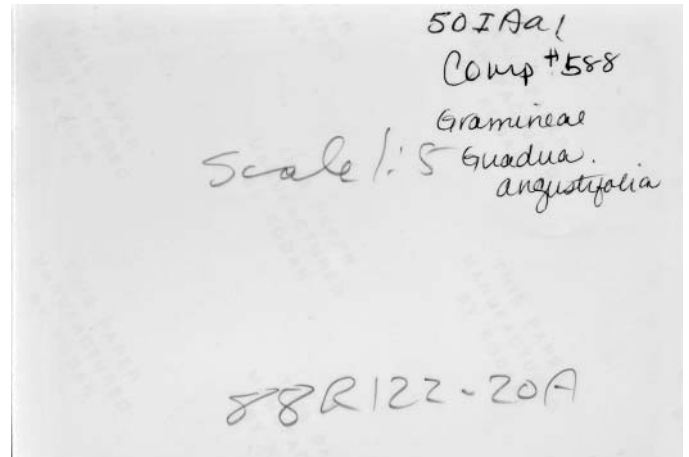 50IAa1
Comp #588
Gramineae
Scale 1:5
Guadua.
angustifolia
88R122-20A